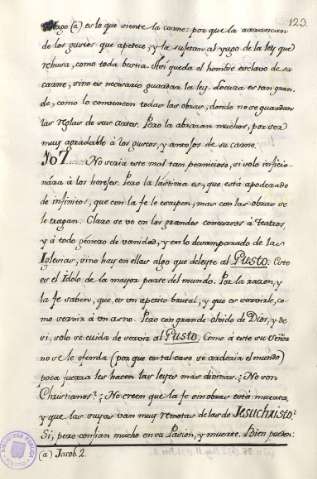 123.
(a) es lo que siente la carne: por que la
de los gustos que apetece, y la sujetan al yugo de la ley que
rehusa, como toda buena. Assi queda el hombre esclavo de su
carne, sino es necesario guardan la ley. doncea es tan gran-
de, como lo comunican todas las obras, donde no se guardan
las reglas de sus actos. Pero la abrazan muchos, por ser
muy agradable à los gustos, y antojos de su carne.
No seria este mal tan pernicioso, si solo inficio-
nára à los herejes. Pero la lastima es, que está apoderado
de infinitos, que con la fe le escupen, mas con las obras se
le tragan. Claro se ve en los grandes concursos à Teatros,
y à todo género de vanidad, y en lo desamparado de las
Iglesias, sino hay en ellas algo que deleyte al Gusto. Este
es el Idolo de la mayor parte del mundo. Por la razon, y
la fe saben, que es un apetito brutal, y que es servirle, co-
mo servir à un asno. Pero con grande olvido de Dios, y de
si, solo se cuida de servir al Gusto. Como à este su Señor
no se le ofenda (por que en tal caso se arderia el mundo)
poca fuerza les hacen las leyes mas divinas. ¿No son
Christianos? ¿No creen que la fe sin obras está muerta,
y que las suyas van muy remotas de las de Jesuchristo?
Si, pero confian mucho en su Pasion, y muerte. Bien pueden:
(a) Jacob. 2.